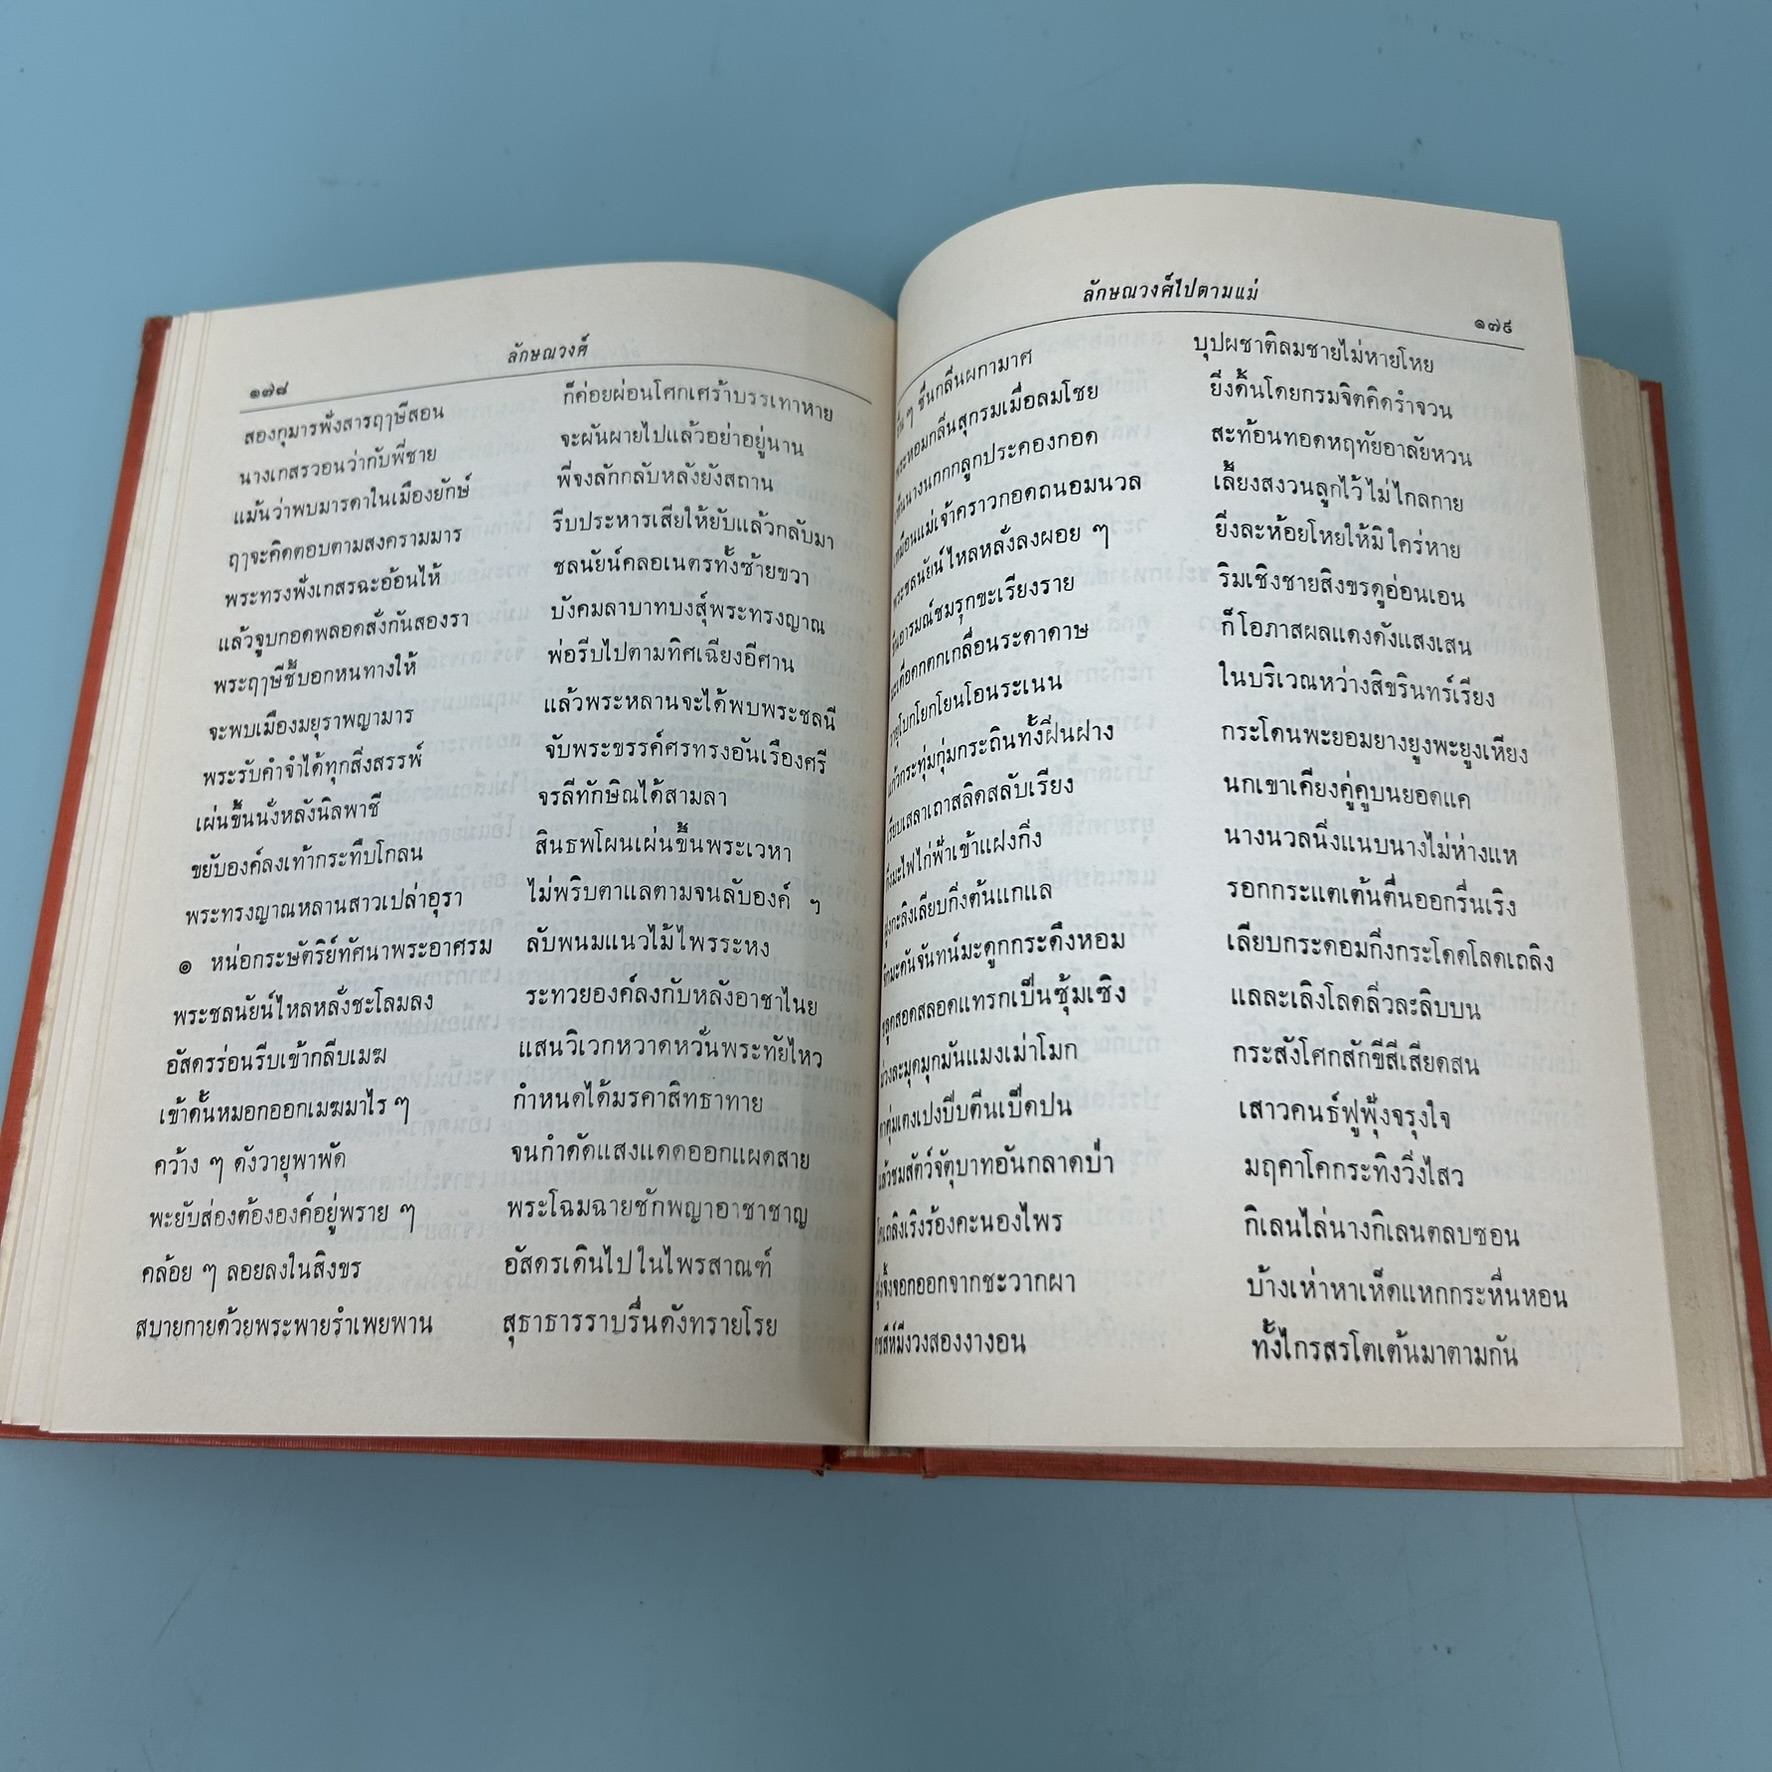 ลักษณวงศ์
๑๗๘
สองกุมารฟังสารฤๅษีสอน ก็ค่อยผ่อนโศกเศร้าบรรเทาหาย
นางเกสรวอนว่ากับพี่ชาย จะผันผายไปแล้วอย่าอยู่นาน
แม้นว่าพบมารดาในเมืองยักษ์ พี่จงลักกลับหลังยังสถาน
ฤๅจะคิดตอบตามสงครามมาร รีบประหารเสียให้ยับแล้วกลับมา
พระทรงฟังเกสรฉะอ้อนไห้ ชลนัยน์คลอเนตรทั้งซ้ายขวา
แล้วจูบกอดพลอดสั่งกันสองรา บังคมลาบาทบงสุ์พระทรงญาณ
พระฤๅษีชี้บอกหนทางให้ พ่อรีบไปตามทิศเฉียงอีศาน
จะพบเมืองมยุราพญามาร แล้วพระหลานจะได้พบพระชลนี
พระรับคำจำได้ทุกสิ่งสรรพ์ จับพระขรรค์ศรทรงอันเรืองศรี
เผ่นขึ้นนั่งหลังนิลพาชี จรลีทักษิณได้สามลา
ขยับองค์ลงเท้ากระทืบโกลน สินธพโผนเผ่นขึ้นพระเวหา
พระทรงญาณหลานสาวเปล่าอุรา ไม่พริบตาแลตามจนลับองค์ ฯ
๏ หน่อกระษัตริย์ทัศนาพระอาศรม ลับพนมแนวไม้ไพรระหง
พระชลนัยน์ไหลหลั่งชะโลมลง ระทวยองค์ลงกับหลังอาชาไนย
อัสดรร่อนรีบเข้ากลีบเมฆ แสนวิเวกหวาดหวั่นพระทัยไหว
เข้าดั้นหมอกออกเมฆมาไร ๆ กำหนดได้มรคาสิทธาทาย
คว้าง ๆ ดังวายุพาพัด จนกำดัดแสงแดดออกแผดสาย
พะยับส่องต้ององค์อยู่พราย ๆ พระโฉมฉายชักพญาอาชาชาญ
คล้อย ๆ ลอยลงในสิงขร อัสดรเดินไปในไพรสาณฑ์
สบายกายด้วยพระพายรำเพยพาน สุธาธารราบรื่นดังทรายโรย
ลักษณวงศ์ไปตามแม่
๑๗๙
ๆ ชื่นกลิ่นผกามาศ บุปผชาติลมชายไม่หายโหย
หอมกลิ่นสุกรมเมื่อลมโชย ยิ่งดิ้นโดยกรมจิตคิดรำจวน
นางนกกกลูกประคองกอด สะท้อนทอดหฤทัยอาลัยหวน
เหมือนแม่เจ้าคราวกอดถนอมนวล เลี้ยงสงวนลูกไว้ไม่ไกลกาย
พระชลนัยน์ไหลหลั่งลงผอย ๆ ยิ่งละห้อยโหยให้มิใคร่หาย
อารมณ์ชมรุกขะเรียงราย ริมเชิงชายสิงขรดูอ่อนเอน
มะเดื่อดกตกเกลื่อนระดาดาษ ก็โอภาสผลแดงดังแสงเสน
วายุโบกโยกโยนโอนระเนน ในบริเวณหว่างสิขรินทร์เรียง
แก้วกระทุ่มกุ่มกระถินทั้งฝิ่นฝาง กระโดนพะยอมยางยูงพะยูงเหียง
เรียบเสลาเถาสลิดสลับเรียง นกเขาเคียงคู่คูบนยอดแค
มะไฟไก่ฟ้าเข้าแฝงกิ่ง นางนวลนิ่งแนบนางไม่ห่างแห
ฝูงกะลิงเลียบกิ่งต้นแกแล รอกกระแตเต้นตื่นออกรื่นเริง
มะดันจันทน์มะดูกกระดึงหอม เลียบกระดอมกิ่งกระโดดโลดเถลิง
สอดสลอดแทรกเป็นซุ้มเซิง แลละเลิงโลดลิ่วละลิบบน
ม่วงละมุดมุกมันแมงเม่าโมก กระสังโศกสักขีสีเสียดสน
ตาตุ่มเตงเปงบีบตีนเป็ดปน เสาวคนธ์ฟูฟุ้งจรุงใจ
แล้วชมสัตว์จัตุบาทอันกลาดป่า มฤคาโคกระทิงวิ่งไสว
เถลิงเริงร้องคะนองไพร กิเลนไล่นางกิเลนตลบซอน
จิ้งจอกออกจากชะวากผา บ้างเห่าหาเห็ดแหกกระหืนหอน
คชสีห์มีงวงสองงางอน ทั้งไกรสรโตเต้นมาตามกัน